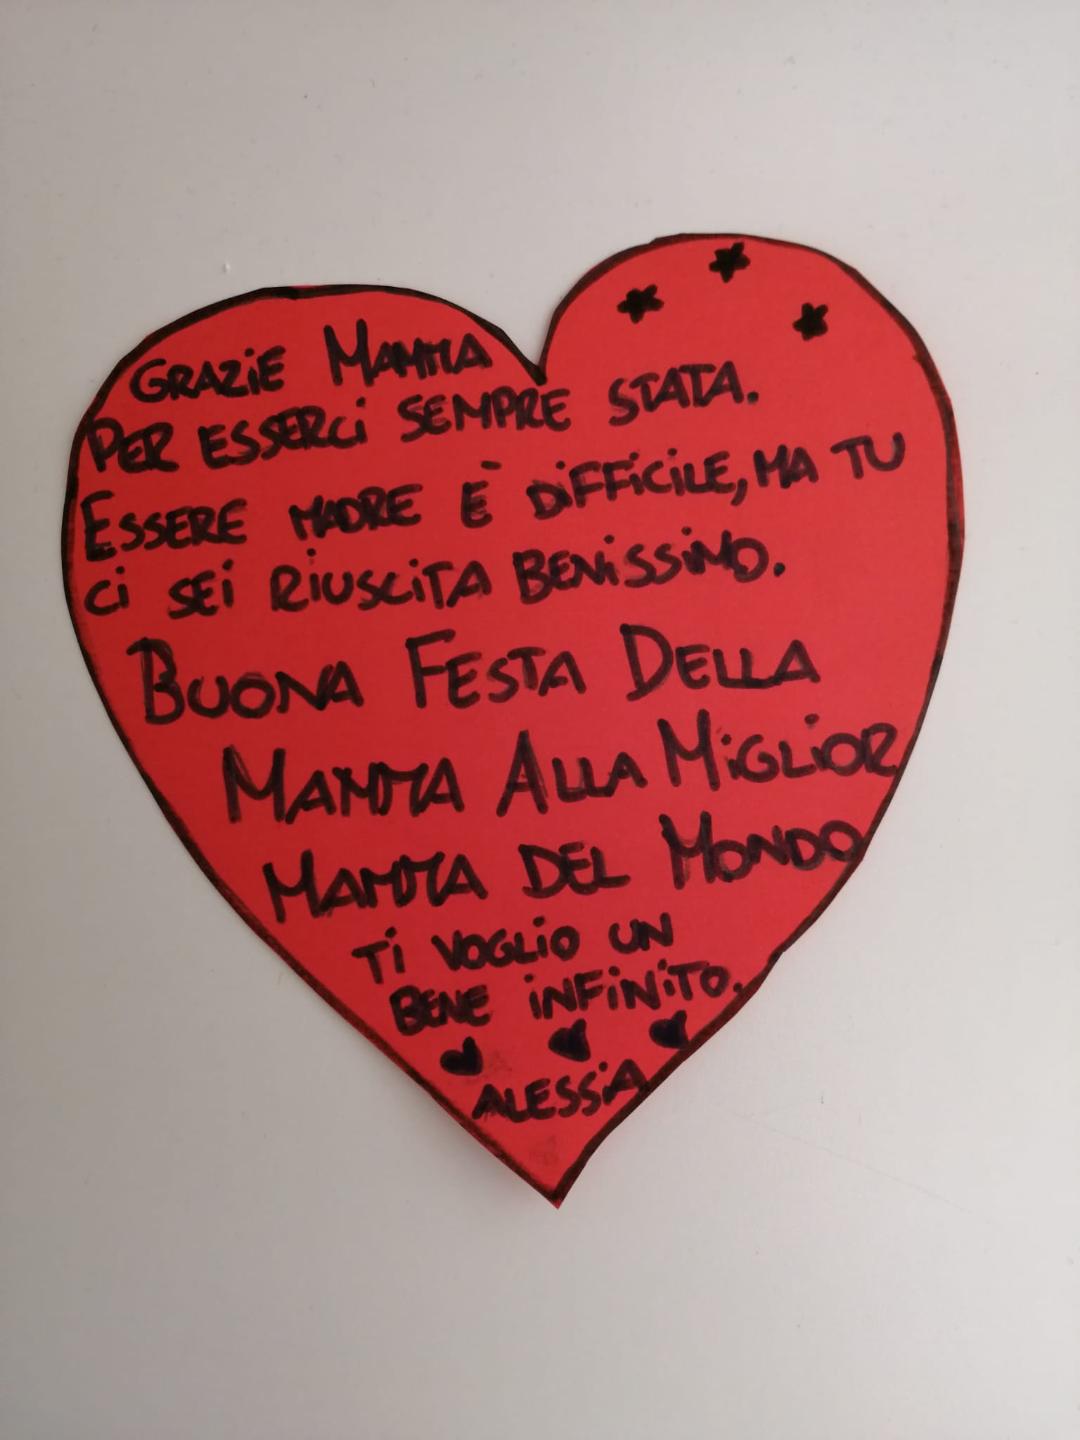 GRAZiE MAMMA
PER ESSERCi SEMPRE STATA.
ESSERE MADRE È DiFFiCiLE, MA TU
Ci SEi RiUSCiTA BENiSSiMO.
BUONA FESTA DELLA
MAMMA ALLA MiGLiOR
MAMMA DEL MONDO
Ti VOGLiO UN
BENE iNFiNiTO.
ALESSiA